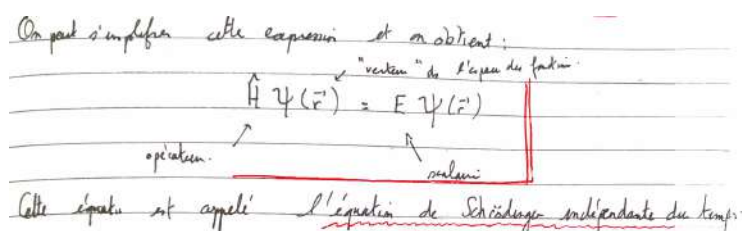 On peut simplifier cette expression et on obtient :
"vecteur" de l'espace des fonctions.
Ĥ ψ(r⃗) = E ψ(r⃗)
opérateur.
scalaire
Cette équat° est appelé l'équation de Schrödinger indépendante du temps.